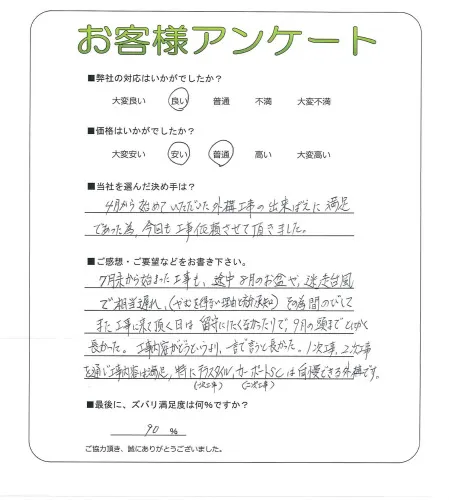 お客様アンケート
■弊社の対応はいかがでしたか？
大変良い 良い 普通 不満 大変不満
■価格はいかがでしたか？
大変安い 安い 普通 高い 大変高い
■当社を選んだ決め手は？
4月から始めていただいた外構工事の出来ばえに満足
であった為、今回も工事依頼させて頂きました。
■ご感想・ご要望などをお書き下さい。
7月末から始まった工事も、途中8月のお盆や、迷走台風
で相当遅れ、(やむを得ない理由と承知) その為間のびして
また工事に来て頂く日は留守にしたくなかったりで、9月の頭までとにかく
長かった。工事内容がどうというより、一言で言うと長かった。1次工事、2次工事
を通し工事内容は満足、特にテラスタイル、カーポートSCは自慢できる外構です。
(一次工事) (二次工事)
■最後に、ズバリ満足度は何%ですか？
90 %
ご協力頂き、誠にありがとうございました。